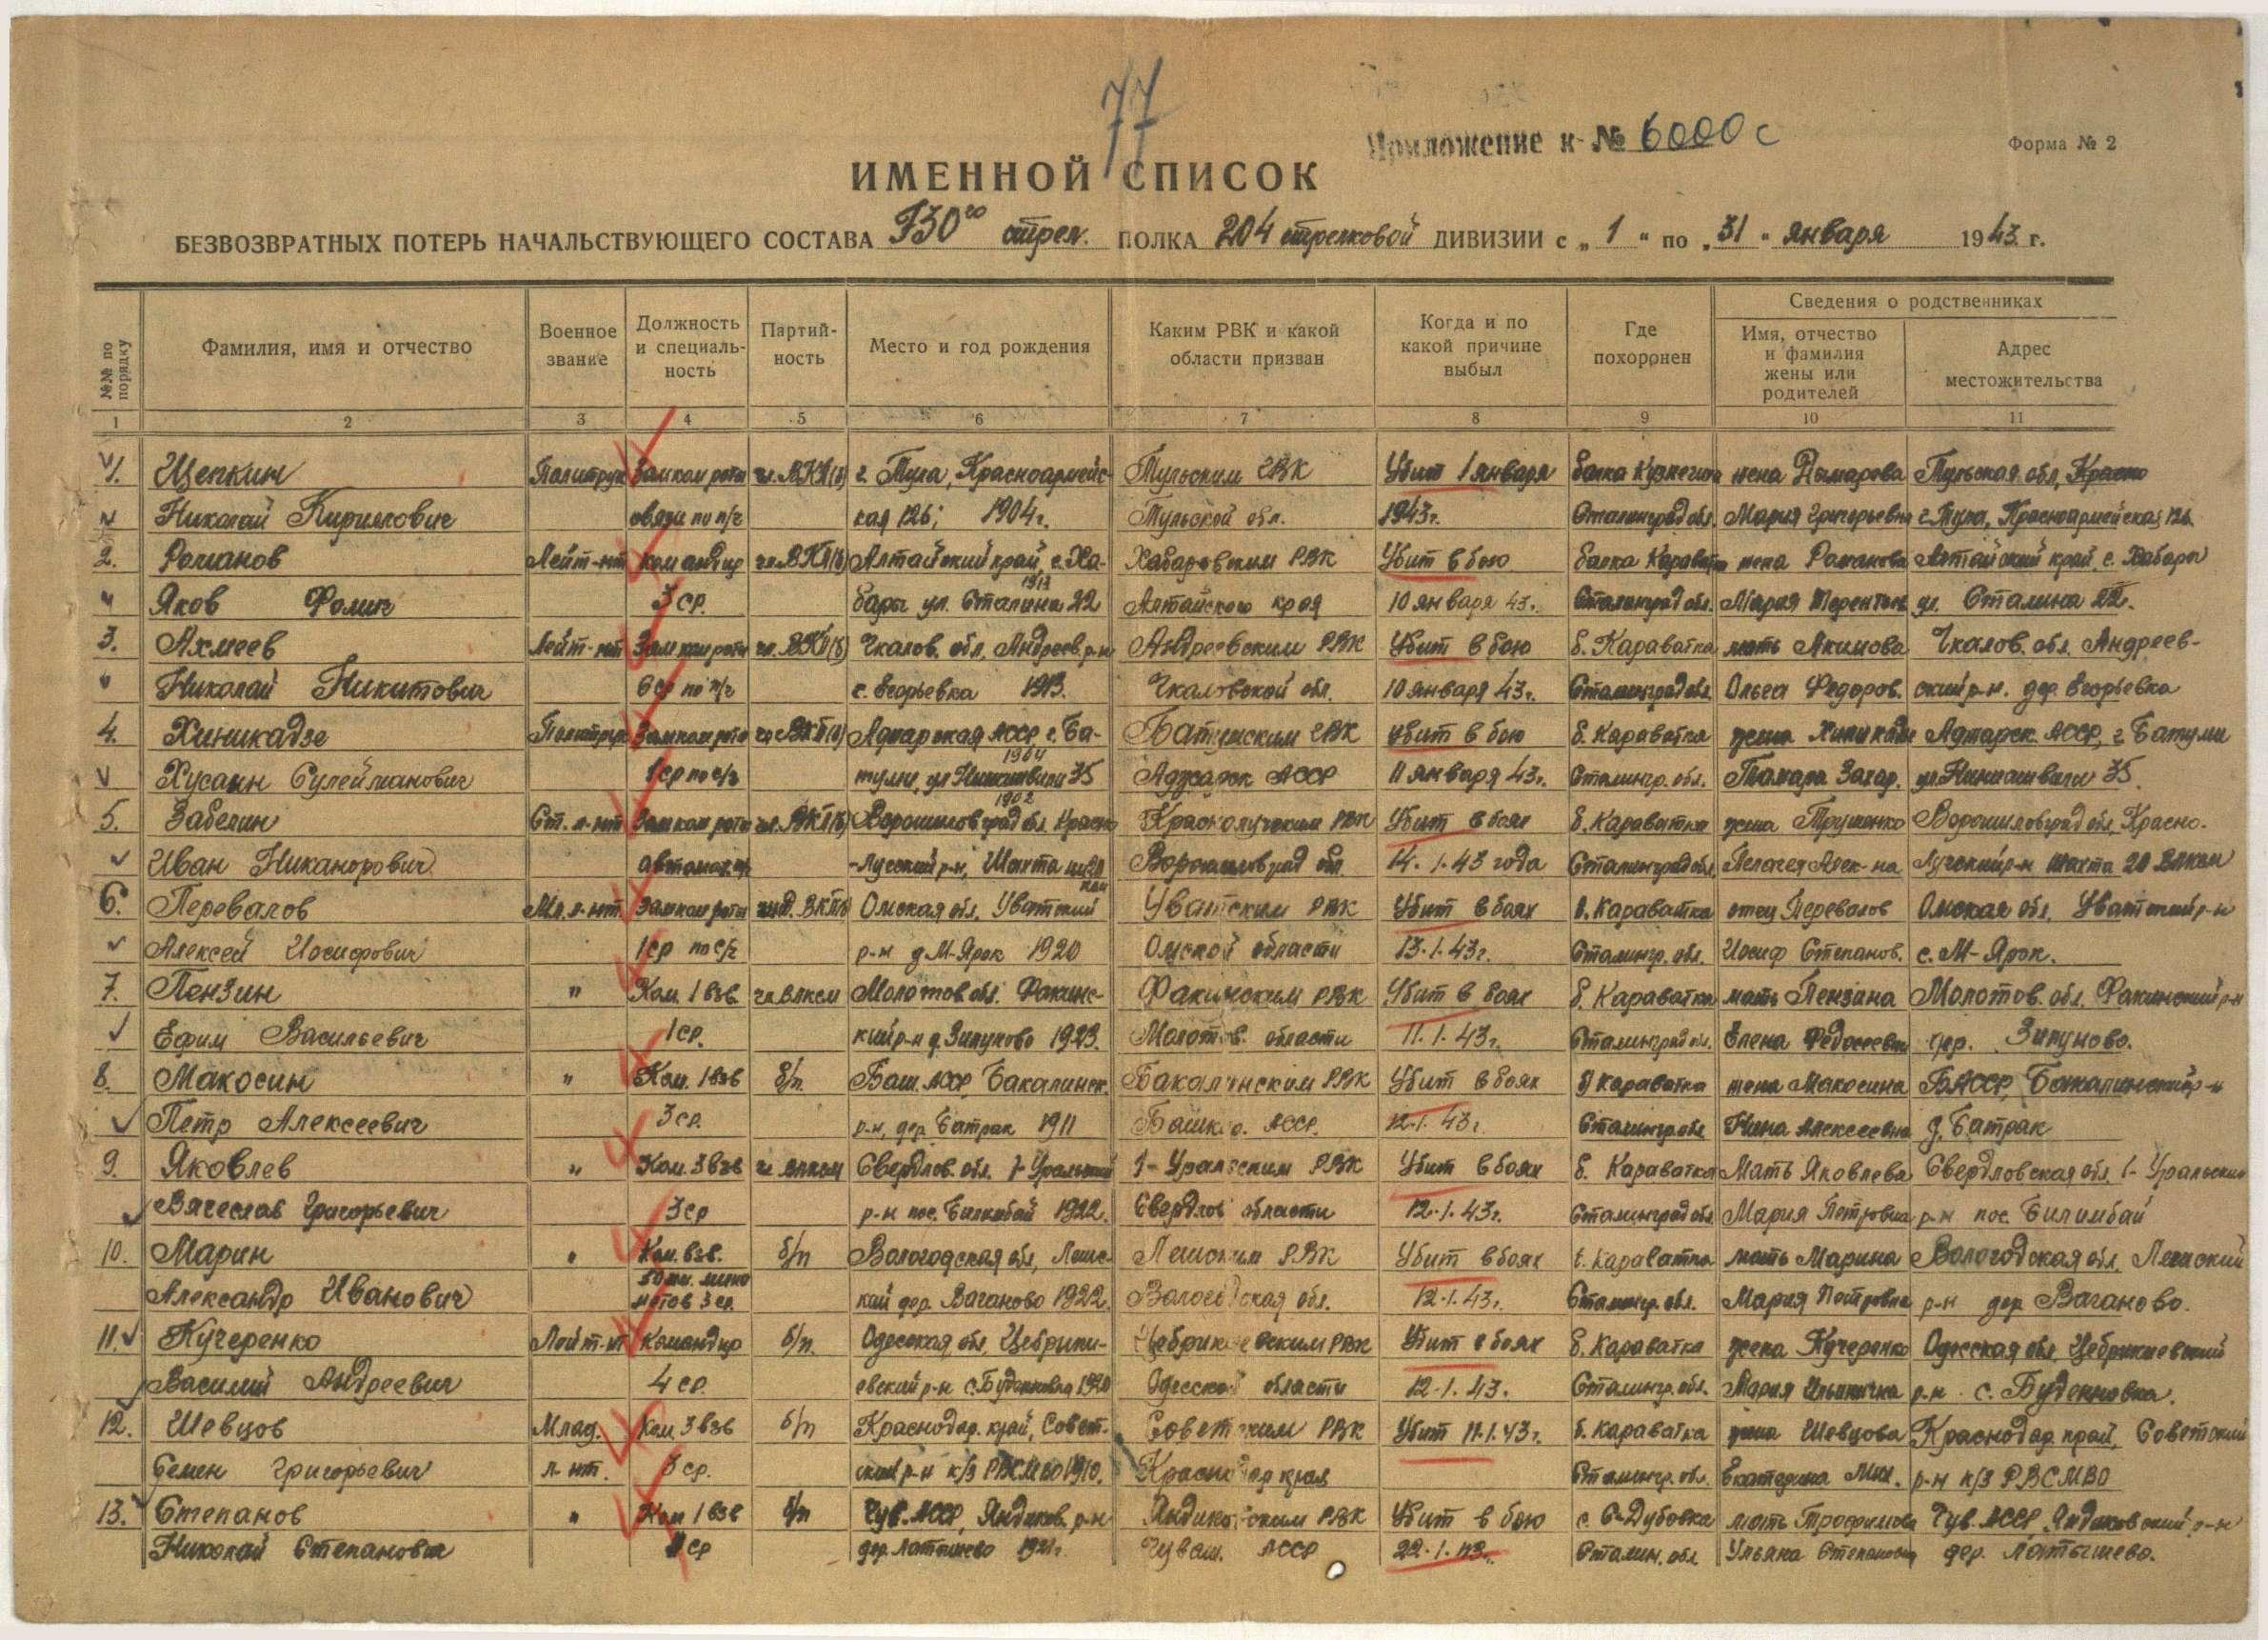 77
Приложение к № 6000 с
Форма № 2
ИМЕННОЙ СПИСОК
БЕЗВОЗВРАТНЫХ ПОТЕРЬ НАЧАЛЬСТВУЮЩЕГО СОСТАВА 730го стрел. ПОЛКА 204 стрелковой ДИВИЗИИ с „ 1 " по „ 31 " января 1943 г.
№№ по порядку
Фамилия, имя и отчество
Военное звание
Должность и специальность
Партийность
Место и год рождения
Каким РВК и какой области призван
Когда и по какой причине выбыл
Где похоронен
Сведения о родственниках
Имя, отчество и фамилия жены или родителей
Адрес местожительства
1 2 3 4 5 6 7 8 9 10 11
1. Щепкин Политрук Замком роты чл. ВКП(б) г. Тула, Красноармейс- Тульским ГВК Убит 1 января балка жена Тульская обл, Красно
Николай Кириллович связи по п/ч кая 126; 1904г. Тульской обл. 1943г. Сталинград обл. Мария Григорьевна г. Тула, Красноармейская 126
2. Романов Лейт-нт Командир чл. ВКП(б) Алтайский край, с. Ха- Хабаровским РВК Убит в бою балка Караватка жена Романова Алтайский край, с. Хабары
Яков Фомич 3 ср. бары ул. Сталина 22 1913 Алтайского края 10 января 43г. Сталинград обл. Мария Терентьев ул. Сталина 22.
3. Ахмеев Лейт-нт Замком роты чл. ВКП(б) Чкалов. обл. Андреев. р-н Андреевским РВК Убит в бою б. Караватка мать Акимова Чкалов. обл. Андреев-
Николай Никитович 6 ср по п/ч с. Егорьевка 1913. Чкаловской обл. 10 января 43г. Сталинград обл. Ольга Федоров. ский р-н. дер. Егорьевка
4. Хиникадзе Политрук Замком роты чл ВКП(б) Аджарская АССР г. Ба- Батумским ГВК убит в бою б. Караватка жена Хиникадзе Аджарск. АССР, г. Батуми
Хусаин Сулейманович 1 ср по с/ч туми, ул 35 1904 Аджарск АССР 11 января 43г. Сталингр. обл. Тамара Захар. ул. 35
5. Забелин Ст. л-нт Замком роты чл. ВКП(б) Ворошиловград обл. Красно 1902 Краснолучским РВК Убит в боях б. Караватка жена Ворошиловград обл. Красно-
Иван Никанорович автомат. -Лучский р-н, Шахта Ворошиловград обл. 14.1.43 года Сталинград обл. Пелагея Алек-на Лучский р-н шахта 20
6. Перевалов Мл. л-нт. Замком роты ВКПб Омская обл. Уватский Уватским РВК Убит в боях б. Караватка отец Перевалов Омская обл. Уватский р-н
Алексей Иосифович 1 ср по с/ч р-н д. М-Ярок 1920 Омской области 13.1.43г. Сталингр. обл. Иосиф Степанов. с. М-Ярок.
7. Пензин " Ком. 1 взв. чл ВЛКСМ Молотов. обл. Фокинс- Фокинским РВК Убит в боях б. Караватка мать Пензина Молотов. обл. Фокинский р-н
Ефим Васильевич 1 ср. кий р-н д. Зипуново 1923. Молотов. области 11.1.43г. Сталинград обл. Елена Федосеевна дер. Зипуново.
8. Макосин " Ком. 1 взв б/п. Баш. АССР Бакалинск. Бакалинским РВК Убит в боях б Караватка жена Макосина БАССР, Бакалинский р-н
Петр Алексеевич 3 ср. р-н, дер. Батрак 1911 Башкир. АССР. 12.1.43г. Сталингр. обл Нина Алексеевна д. Батрак
9. Яковлев " Ком. 3 взв чл ВЛКСМ Свердлов. обл. 1-Уральский 1-Уральским РВК Убит в боях б. Караватка Мать Яковлева Свердловская обл. 1-Уральский
Вячеслав Григорьевич 3 ср р-н пос. Билимбай 1922. Свердлов области 12.1.43г. Сталинград обл. Мария Петровна р-н пос. Билимбай
10. Марин " Ком. взв. б/п Вологодская обл, Лежс- Лежским РВК Убит в боях б. Караватка мать Марина Вологодская обл. Лежский
Александр Иванович 50 мм. мино метов 3 ср. кий дер. Ваганово 1922. Вологодская обл. 12.1.43г. Сталингр. обл. Мария Петровна р-н дер Ваганово.
11. Кучеренко Лейт-нт Командир б/п. Одесская обл, Цебрики- Цебриковским РВК Убит в боях б. Караватка жена Кучеренко Одесская обл. Цебрикиевский
Василий Андреевич 4 ср. евский р-н с. Буденновка 1920 Одесской области 12.1.43. Сталингр. обл. Мария Ильинична р-н. с. Буденновка.
12. Шевцов Млад. Ком. 3 взв б/п Краснодар. край, Совет- Советским РВК Убит 11.1.43г. б. Караватка жена Шевцова Краснодар. край, Советский
Семен Григорьевич л-нт. 3 ср. ский р-н к/з РВСМВО 1910. Краснодар края Сталингр. обл. Екатерина Мих. р-н к/з РВСМВО
13. Степанов " Ком 1 взв б/п Чув. АССР, Яндиков. р-н Яндиковским РВК Убит в бою с. Дубовка мать Трофимова Чув. АССР, Яндиковский р-н
Николай Степанович ср дер. Латышево 1921г. Чуваш. АССР 22.1.43г. Сталин. обл Ульяна Степановна дер. Латышево.